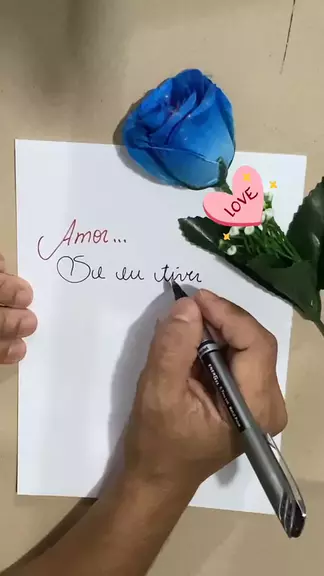 LOVE
Amor...
Se eu tiver